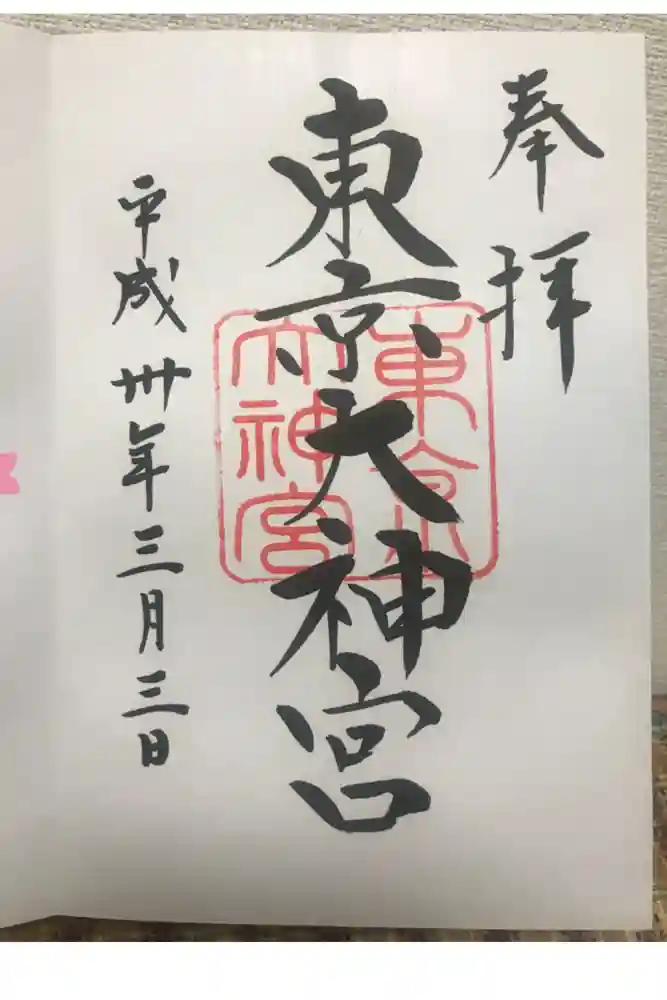 奉拝
東京大神宮
東京大神宮
平成卅年三月三日